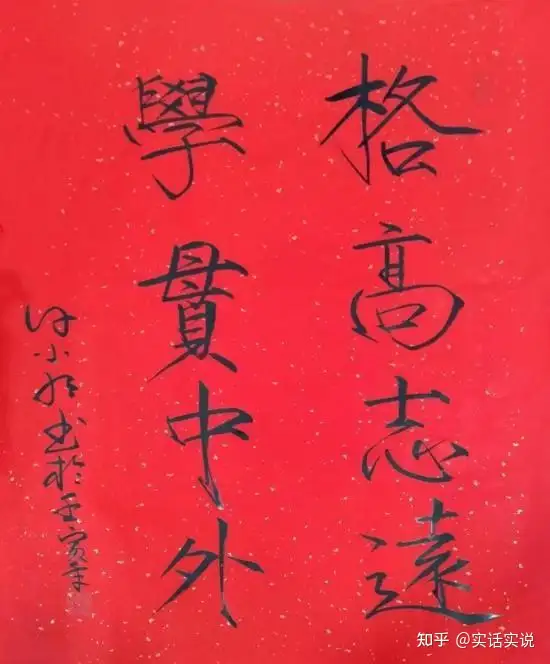 格高志遠
學貫中外
许小

书於壬寅年
知乎 @实话实说